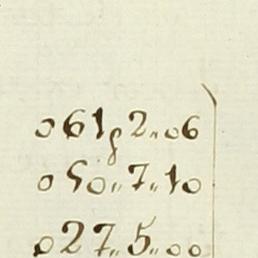 061„2„06
050„7„10
027„5„00